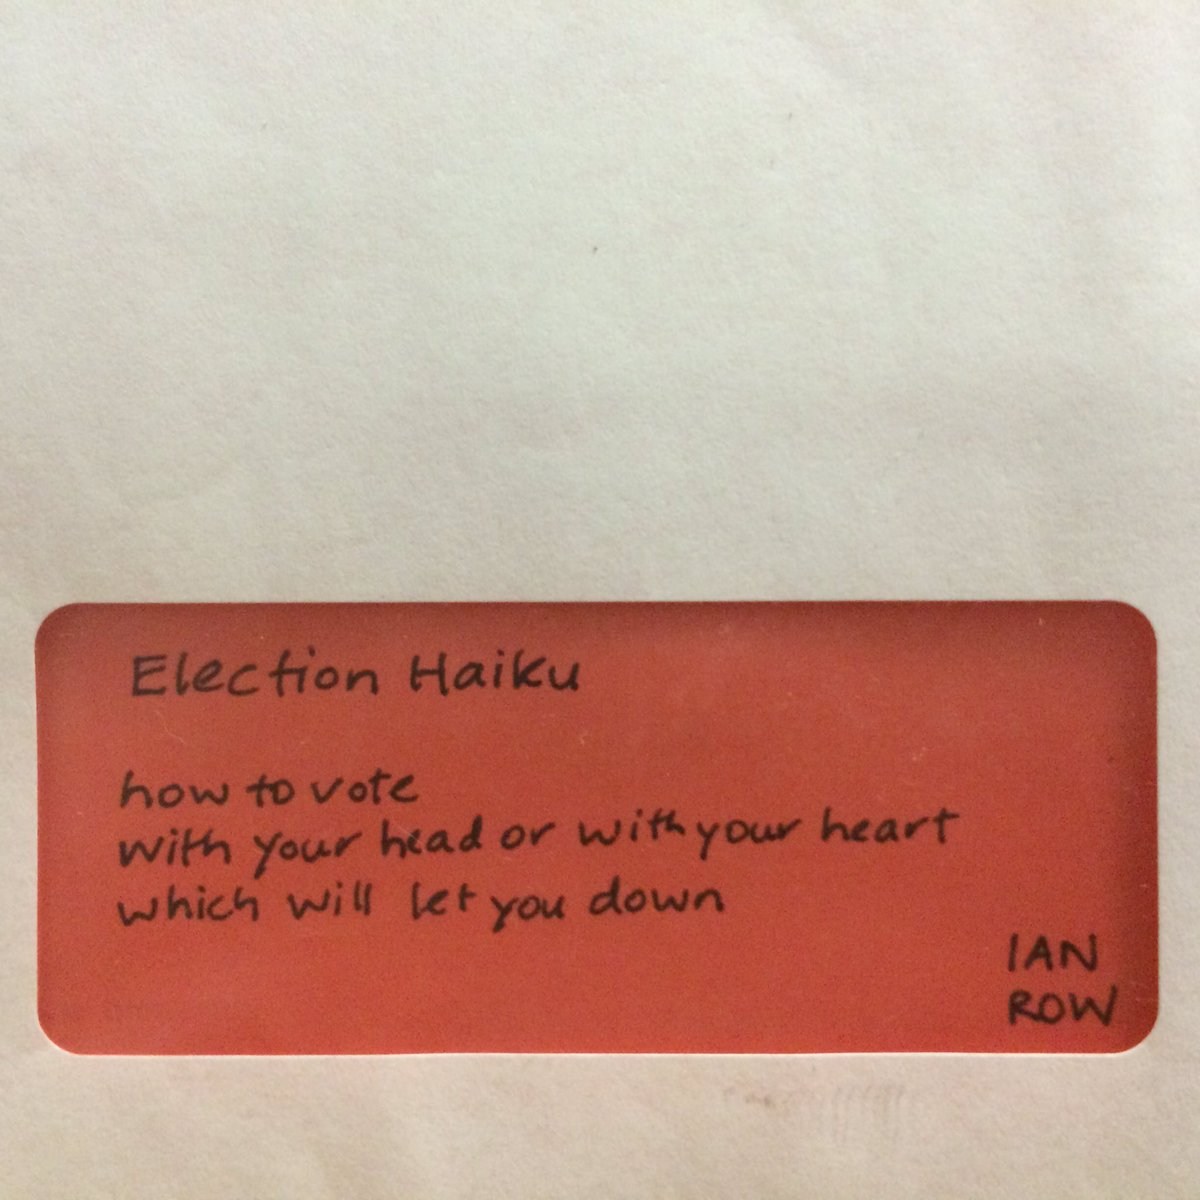 Election Haiku
how to vote
with your head or with your heart
which will let you down
IAN
ROW